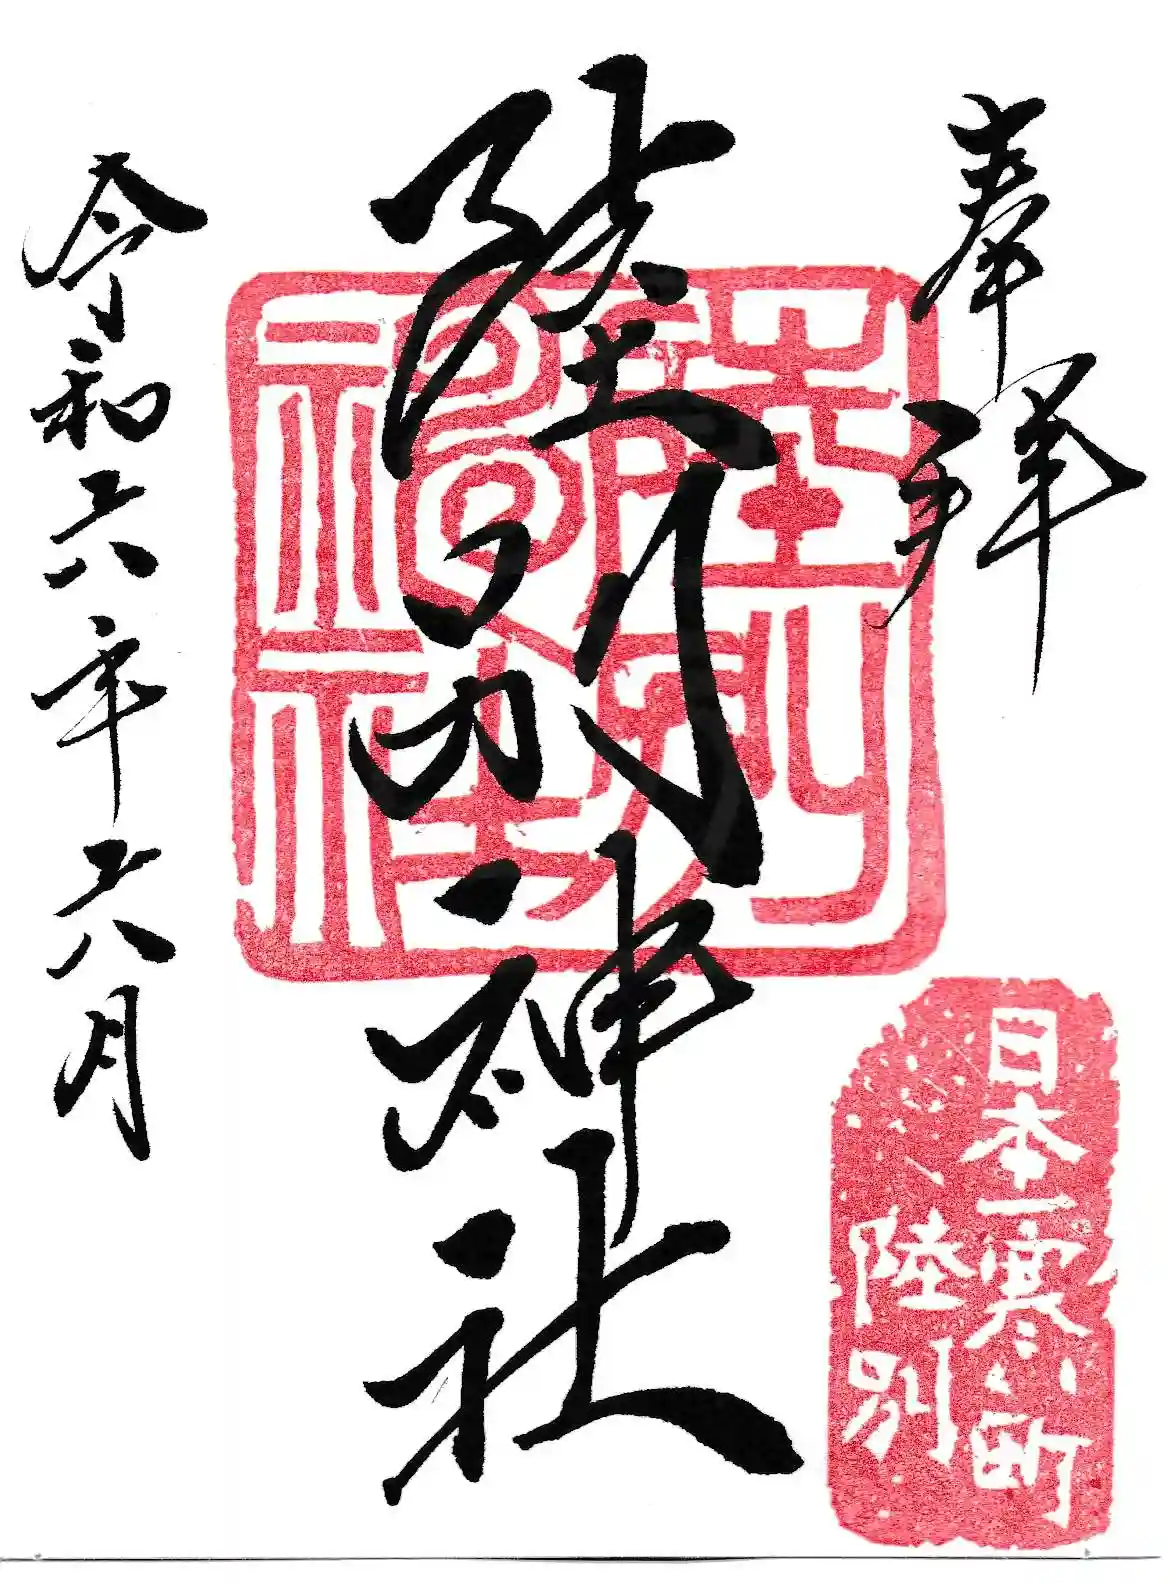 奉拝
日本一寒い町
陸別
陸別神社
陸別神社
令和六年六月